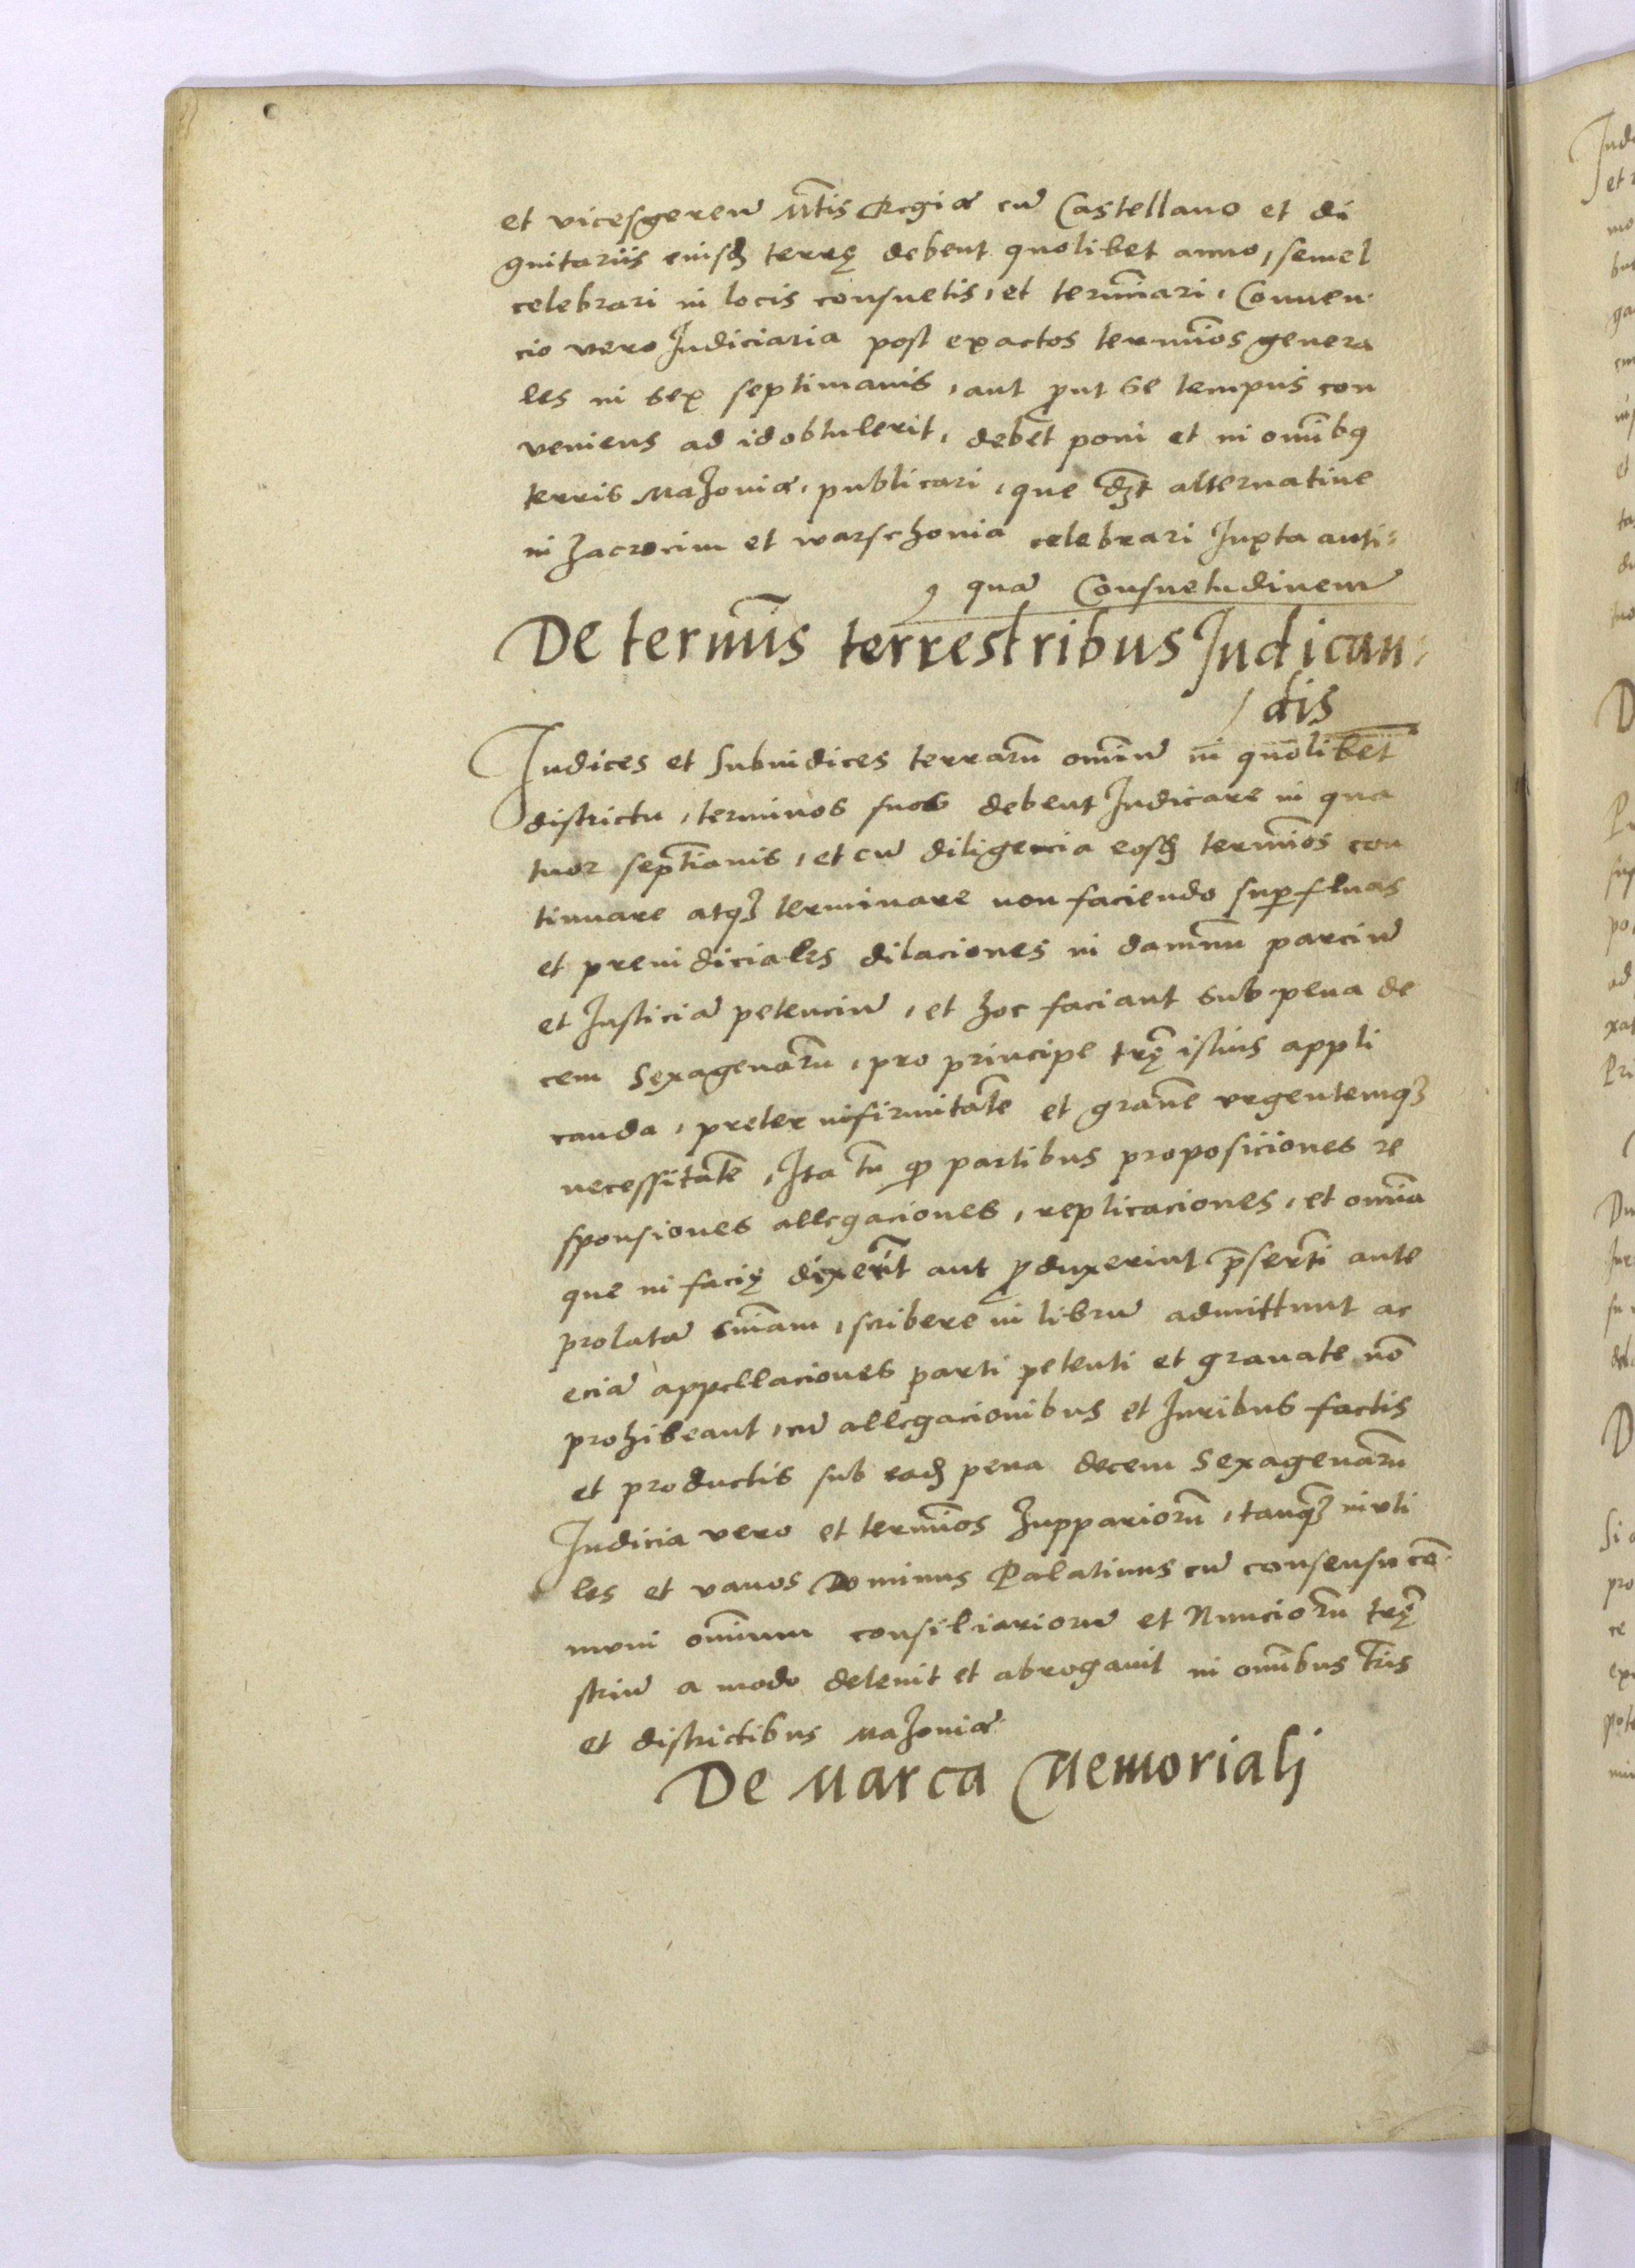 et vicesgerentē Mtis Regiæ cū Castellano et di
gnitariis eiusdē terrę debent quolibet anno, semel
celebrari in locis consuetis, et termīnari, Conuen
cio vero Judiciaria post exactos termīos genera
les in sex septimanis, aut ꝓut se tempus con
veniens ad id obtulerit, debēt poni et in omībꝯ
terris Mazoviæ, publicari, que dꝫt alternatiue
in Zacrocim et warschovia celebrari Juxta anti=
quā Consuetudinem
De termīs terrestribus Judican=
dis
Judices et Subiudices terrarū omīū in quolibet
districtu, terminos suos debent Judicare in qua
tuor septīanis, et cū diligencia eosdē termīos con
tinuare atqꝫ terminare non faciendo suꝑfluas
et preiudiciales dilaciones in damnū parciū
et Justiciā petenciū, et hoc faciant sub pena de
cem Sexagenarū, pro principe trę̄ istius appli
canda, preter infirmitatē et grauē vrgentemqꝫ
necessitatē, Ita tn̄ ꝙ partibus proposiciones re
sponsiones allegaciones, replicaciones, et omīa
que in facię dixerīt aut ꝓduxerint p̄sertī ante
prolatā sn̄iam, scribere in librū admittunt ac
eciā appellaciones parti petenti et grauate nō
prohibeant, cū allegacionibus et Juribus factis
et productis sub eadē pena decem Sexagenarū
Judicia vero et termīos Zuppariorū, tanqꝫ invti
les et vanos Dominus Palatinus cū consensu cō
muni omīum consiliariorū et Nuncioru trę̄
striū a modo deleuit et abrogauit in omībus tr̄is
et districtibus Mazoviæ
De Marca Memoriali